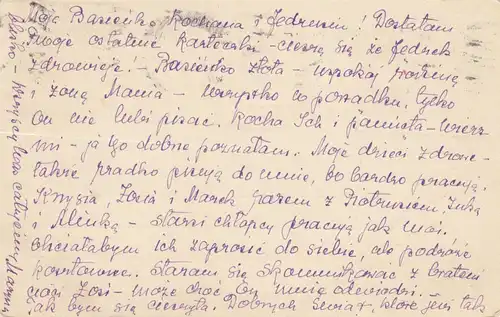 Moja Basieńko kochana i Jędrusiu! Dostałam
Twoje ostatnie karteczki – cieszę się że Jędrek
zdrowieje! – Basieńko złota – uspokój rodzinę
i żonę Mania – wszystko w porządku, tylko
on nie lubi pisać. Kocha Ich i pamięta – wierz
mi – ja go dobrze poznałam. Moje dzieci zdrowe –
także rzadko piszą do mnie, bo bardzo pracują.
Krysia, Zosia i Marek razem z Piotrusiem,
i Alinką – starsi chłopcy pracują jak
chciałabym Ich zaprosić do siebie, ale podróże
kosztowne. Staram się skomunikować z bratem
Zosi – może choć On mnie odwiedzi.
Tak bym się cieszyła. Dobrych Świąt, które już tak
blisko – Wszystkich Was całuję Mama